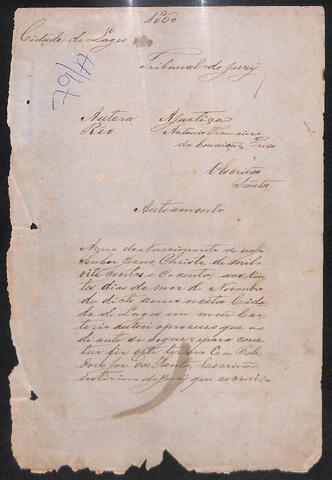 1860
Cidade de Lages
Tribunal do Jury
79/77
Autora A justiça
Reo Antonio Francisco
da Conceição, Preso
O Escrivão
Santos
Autoamento
Anno do Nascimento de nosso
Senhor Jesus Christo de mil
oito centos e secenta, aos
dias do mez de Novembro
do dicto anno nesta Cida
de de Lages em meu Car
torio autoei o processo que ao
diante se segue; para cons
tar fiz este termo Eu
José dos Santos, Escrivão
interino do jury que escrevi